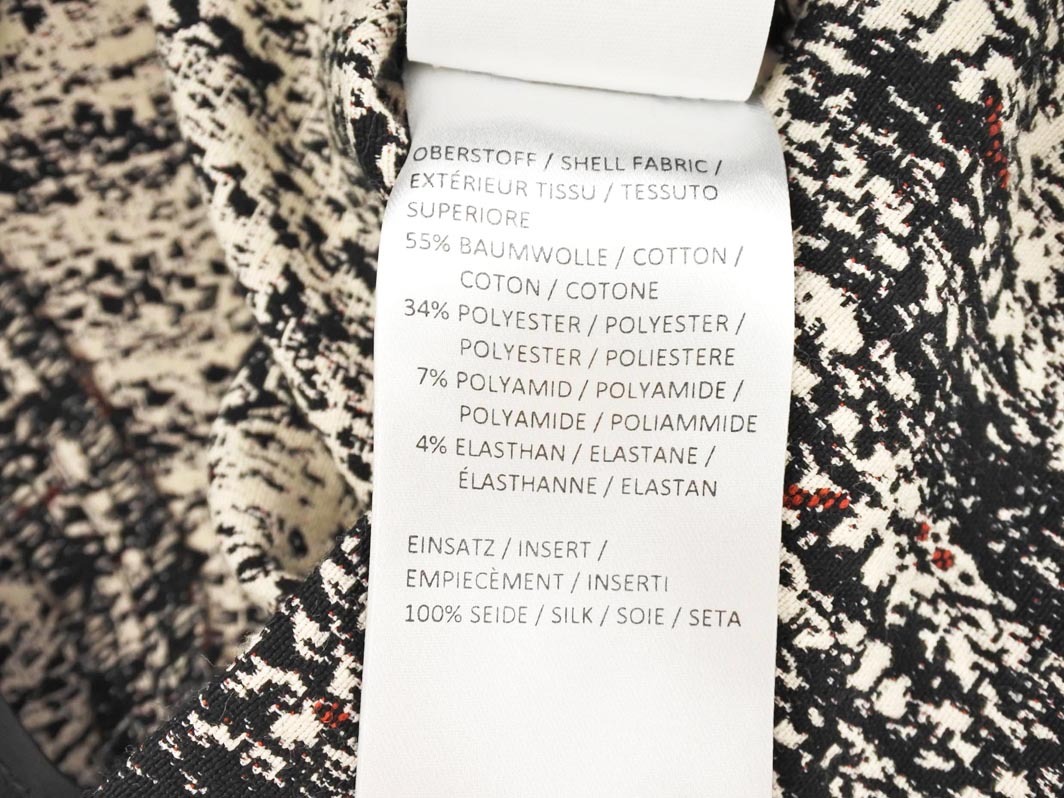 OBERSTOFF / SHELL FABRIC /
EXTÉRIEUR TISSU / TESSUTO
SUPERIORE
55% BAUMWOLLE / COTTON /
COTON / COTONE
34% POLYESTER / POLYESTER /
POLYESTER / POLIESTERE
7% POLYAMID / POLYAMIDE /
POLYAMIDE / POLIAMMIDE
4% ELASTHAN / ELASTANE /
ÉLASTHANNE / ELASTAN
EINSATZ / INSERT /
EMPIECÈMENT / INSERTI
100% SEIDE / SILK / SOIE / SETA